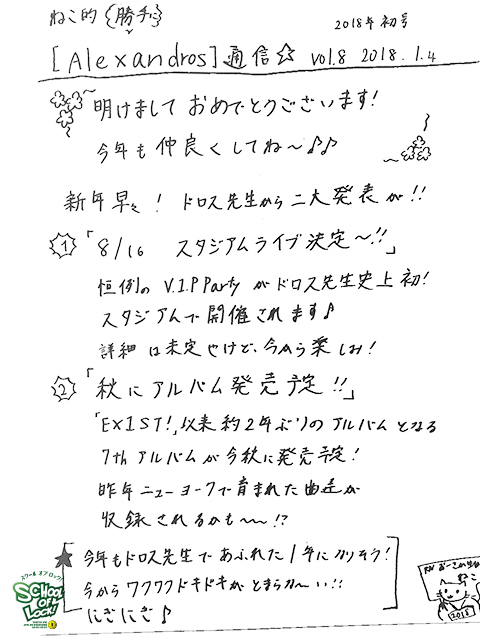 ねこ的 {勝手に} 2018年 初号
[Alexandros]通信☆ vol.8 2018.1.4
明けまして おめでとうございます!
今年も仲良くしてね〜♪♪
新年早々! ドロス先生から二大発表が!!
①「8/16 スタジアムライブ決定〜!!」
恒例の V.I.P Party がドロス先生史上初!
スタジアムで開催されます♪
詳細は未定やけど、今から楽しみ!
②「秋にアルバム発売予定!!」
「EXIST!」以来約2年ぶりのアルバムとなる
7thアルバムが今秋に発売予定!
昨年ニューヨークで育まれた曲達が
収録されるかも〜〜!?
★今年もドロス先生であふれた1年になりそう!
今からワクワクドキドキがとまらな〜い!!
にぎにぎ♪
スクール オブ ロック!
SCHOOL OF LOCK!
2018